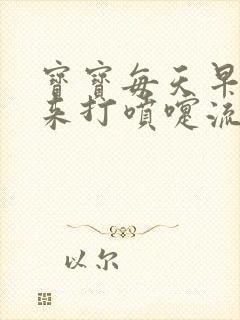 寶寶每天早
来打噴嚏流
以尔